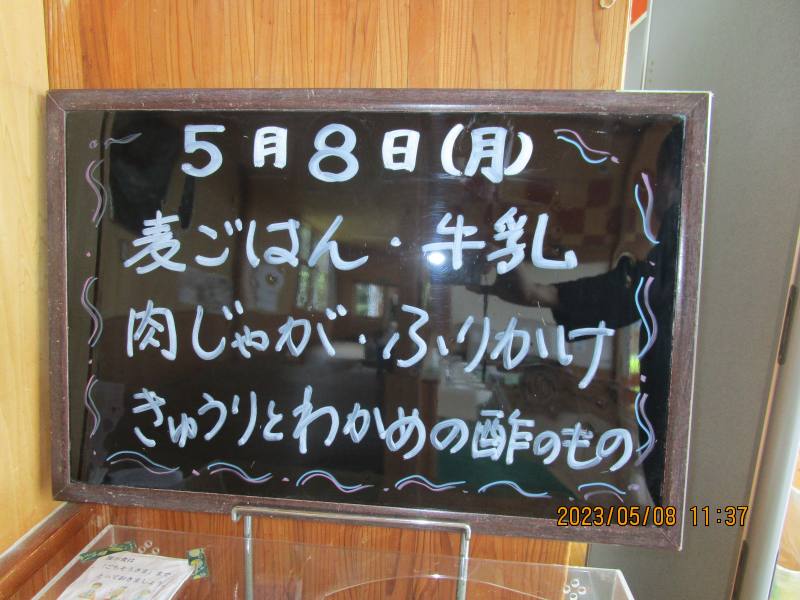 5月8日(月)
麦ごはん・牛乳
肉じゃが・ふりかけ
きゅうりとわかめの酢のもの
2023/05/08 11:37